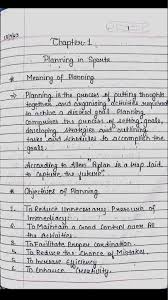 Chapter 1
Planning in Sports
* Meaning of Planning
→ Planning is the process of putting thoughts
together and organising activities required
to achieve a desired goal. Planning
comprises the process of setting goals,
developing strategies and outlining
tasks and schedules to accomplish the
goals.
According to Allen "A plan is a trap laid
to capture the future"
* Objectives of Planning
1. To Reduce Unnecessary Pressure of
Immediacy:
2. To Maintain a Good Control over All
the Activities.
3. To Facilitate Proper Coordination
4. To Reduce the Chance of Mistakes
5. To Increase Efficiency
6. To Enhance Creativity.